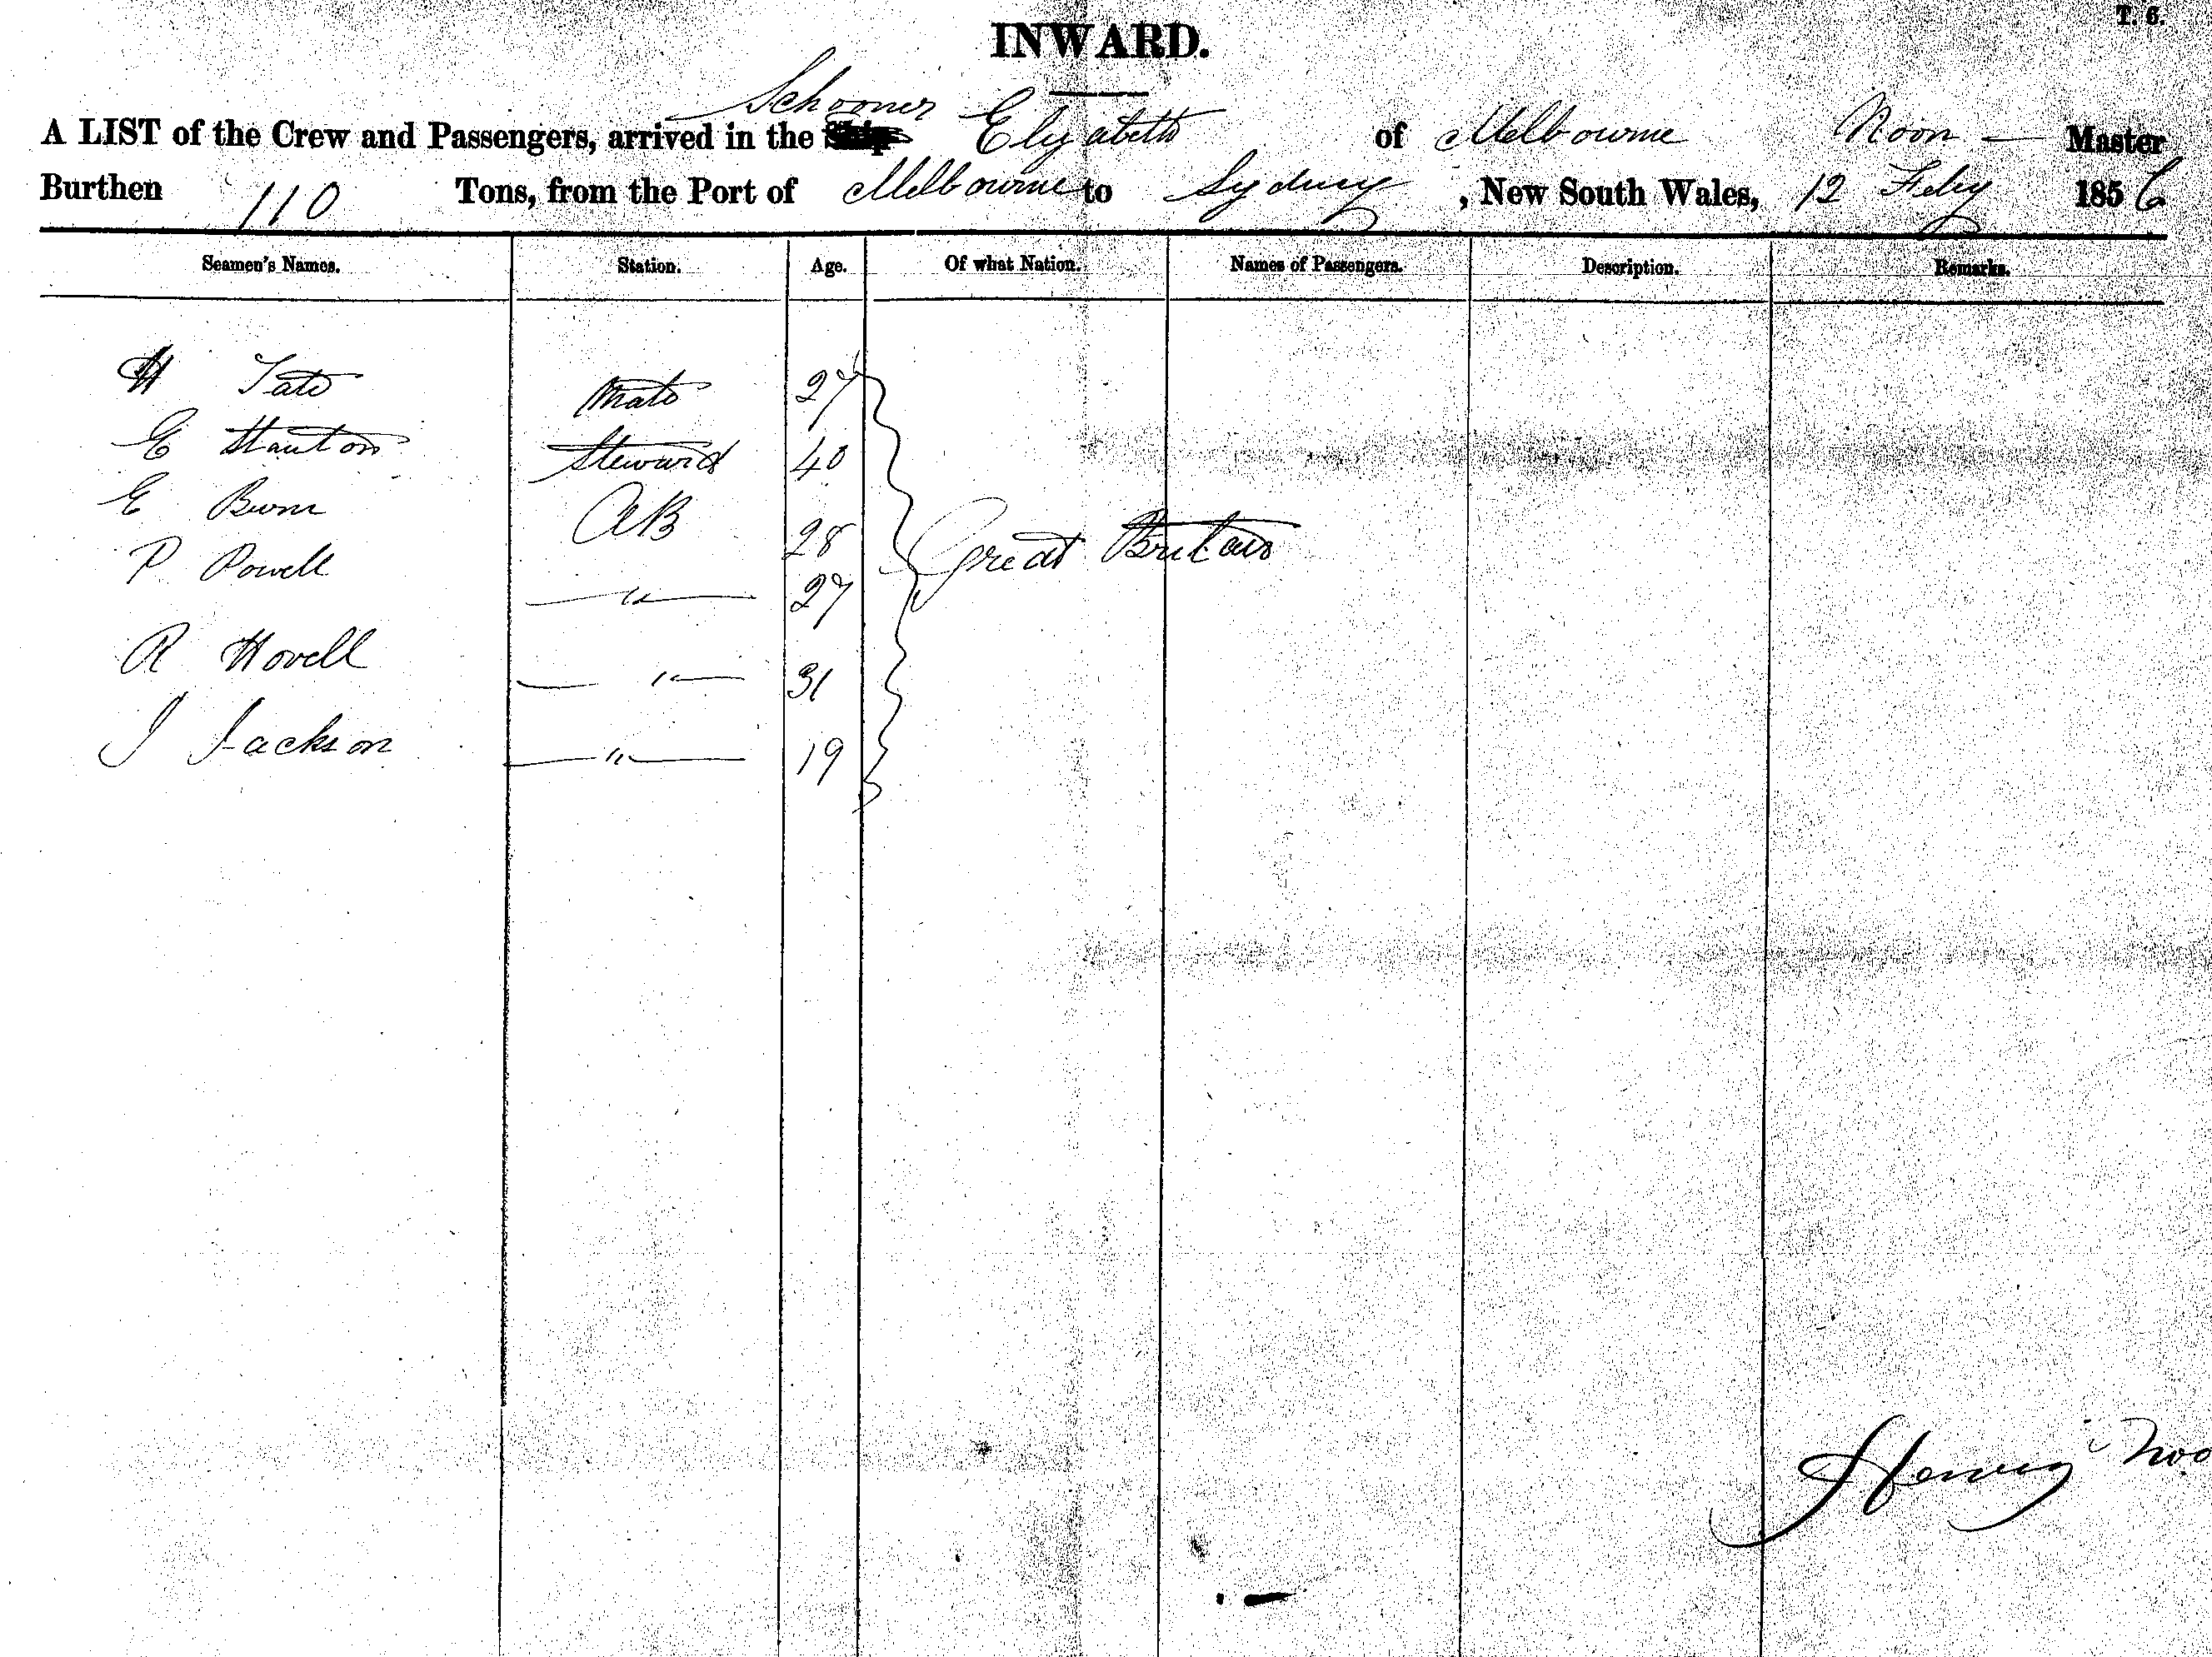 T. 6.
INWARD.
Schooner
A LIST of the Crew and Passengers, arrived in the Ship Elizabeth of Melbourne Noon — Master
Burthen 110 Tons, from the Port of Melbourne to Sydney, New South Wales, 12 Feby 1856
Seamen's Names. Station. Age. Of what Nation. Names of Passengers. Description. Remarks.
H Tate Mate 27
E Stanton Steward 40
E Burn AB 28 Great Britain
P Powell — " — 27
R Hovell — " — 31
J Jackson — " — 19
Henry Noo